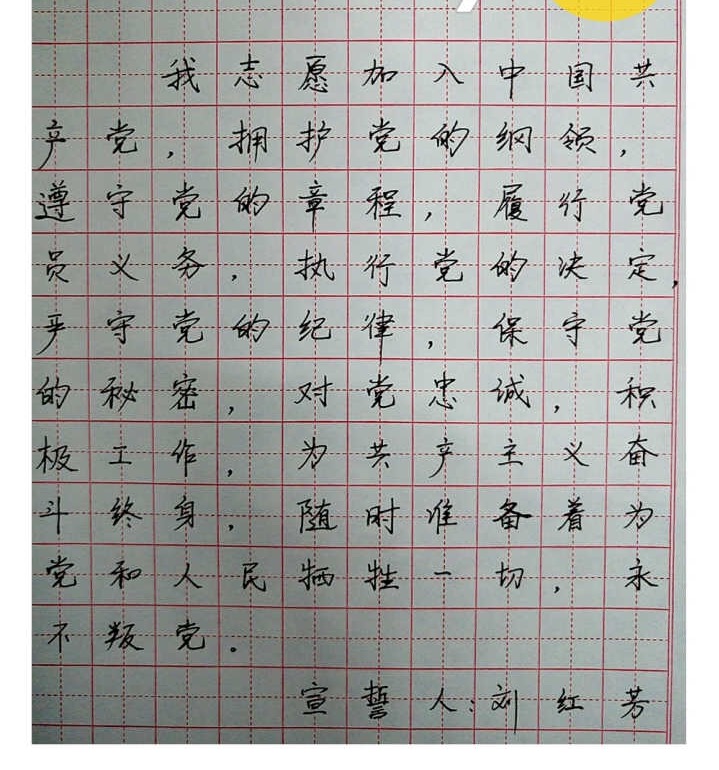 我志愿加入中国共
产党，拥护党的纲领，
遵守党的章程，履行党
员义务，执行党的决定，
严守党的纪律，保守党
的秘密，对党忠诚，积
极工作，为共产主义奋
斗终身，随时准备着为
党和人民牺牲一切，永
不叛党。
宣誓人：刘红芳